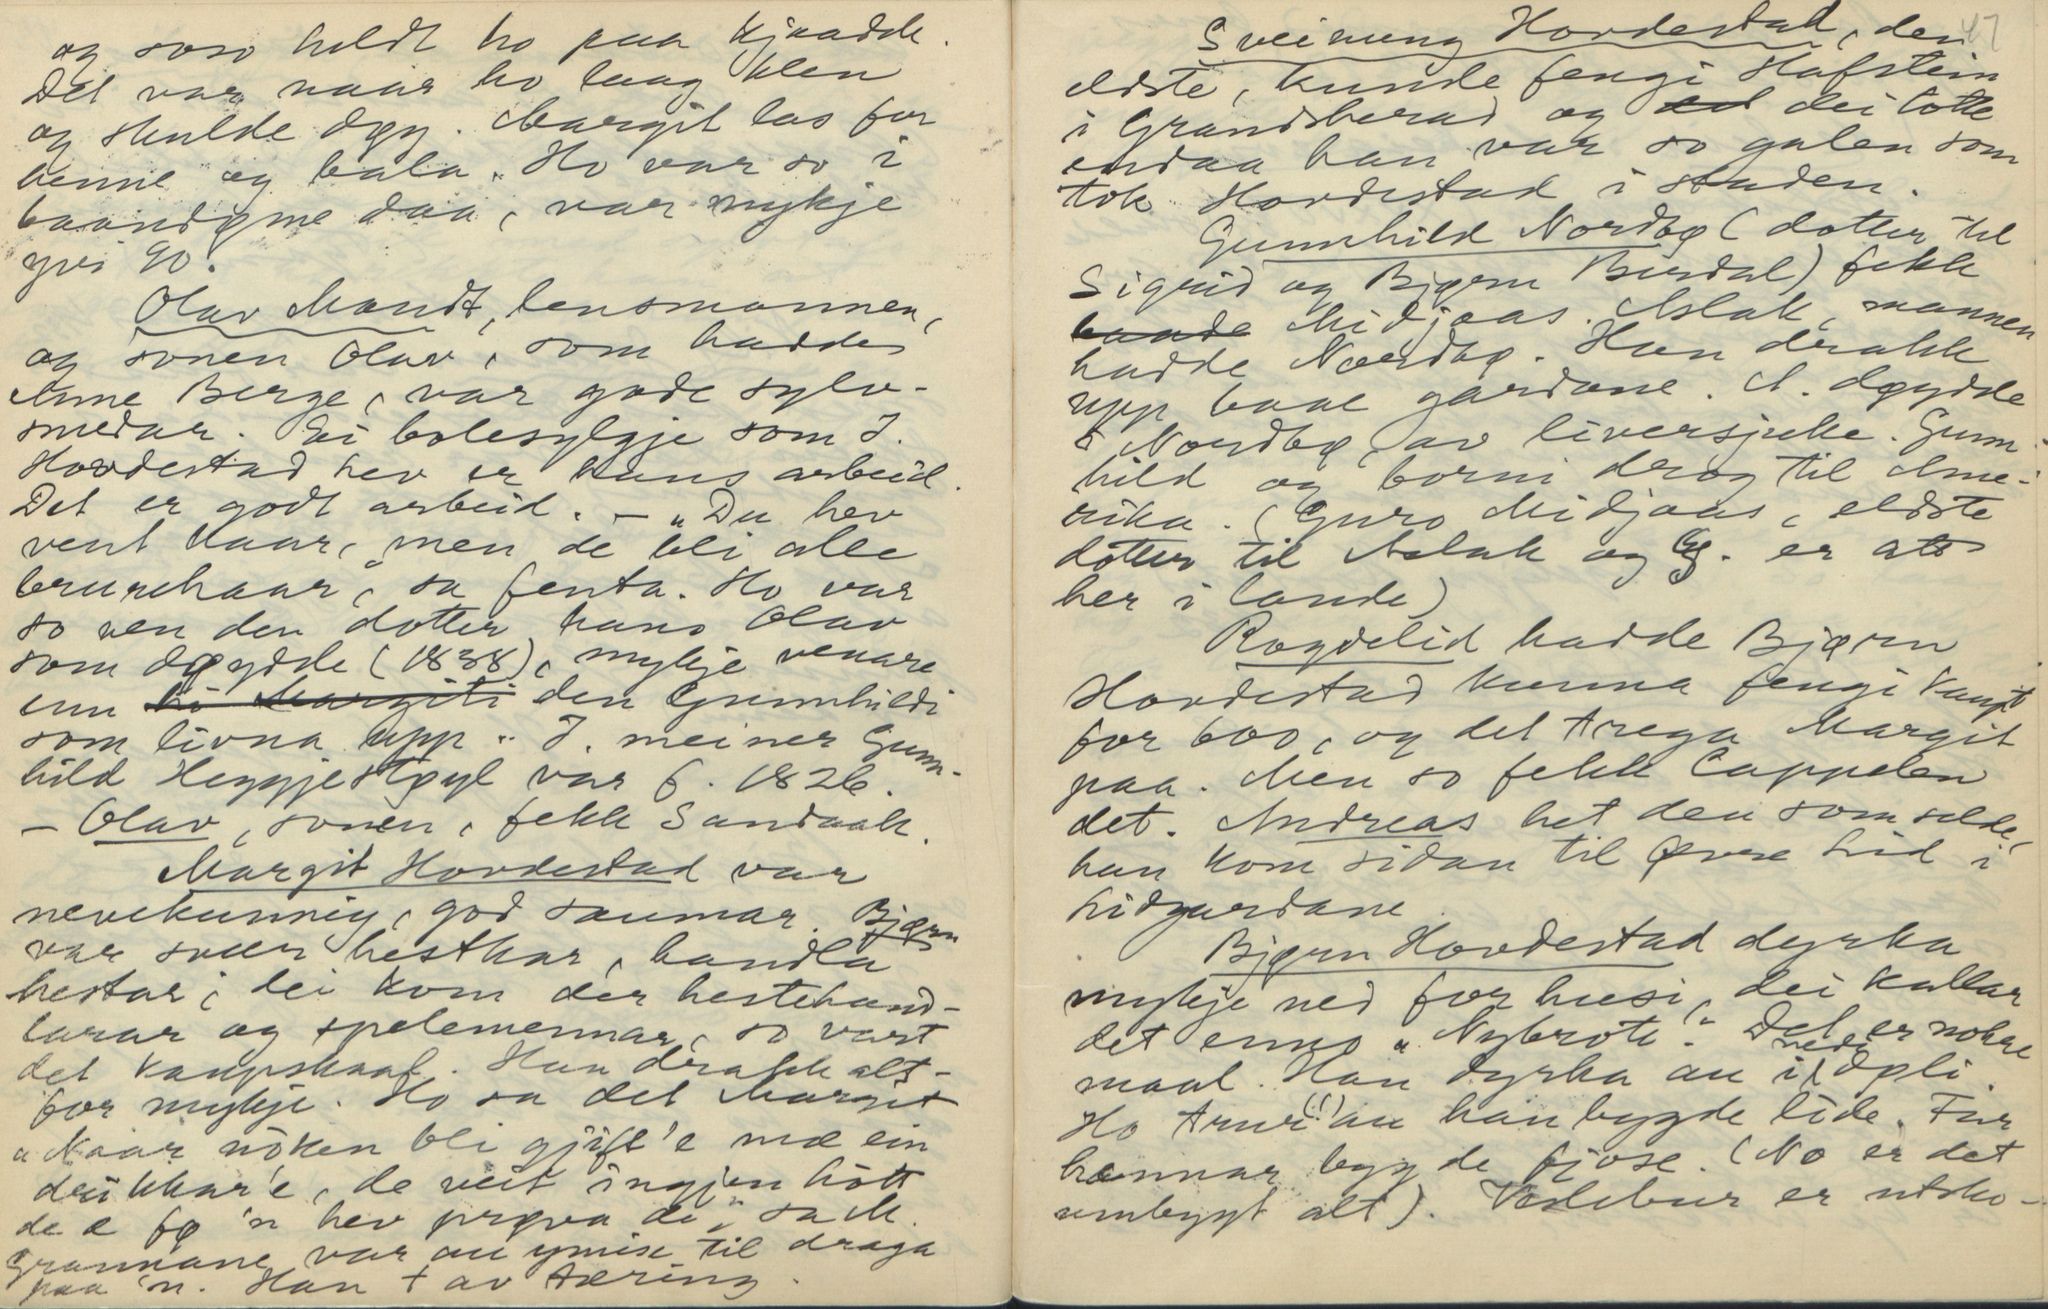 og soso heldt ho paa kjaadde.
Det var naar ho laag klen
og skulde døy. Margit las for
henne og bala. Ho var so i
baandøme daa, var mykje
yvi 90.
Olav Mandt, lensmannen,
og sonen Olav, som hadde
Anne Berge, var gode sylv-
smedar. Ei bolesylgje som J.
Hovdestad hev er hans arbeid.
Det er godt arbeid. — "Du hev
vent haar, men de bli alle
brurehaar," sa fenta. Ho var
so ven den dotter hans Olav
som døydde (1838), mykje venare
enn ho Margiti den Gunnhildi
som livna upp". J. meiner Gunn-
hild Heggjestøyl var f. 1826.
— Olav, sonen, fekk Sandaak.
Margit Hovdestad var
nevekunnig, god saumar. Bjørn
var svær hestkar, handla
hestar; dei kom der hestehand-
larar og spelemennar, so vart
det kaupskaal. Han drakk alt-
for mykje. Ho sa det Margit
"Naar nóken bli gjift'e mæ ein
drikkar'e, de veit ingjen hótt
de æ fø 'n hev prøva de," sa M.
Grannane var au ymise til draga
paa 'n. Han † av tæring.
47
Sveinung Hovdestad, den
eldste, kunde fengi Hafstein
i Gransherad og dei totte
endaa han var so galen som
tok Hovdestad i staden.
Gunnhild Nordbø (dotter til
Sigrid og Bjørn Birdal) fekk
baade Midjaas. Aslak, mannen
hadde Nordbø. Han drakk
upp baae gardane. A. døydde
i Nordbø, av liversjuke. Gunn-
hild og borni drog til Ame-
rika. (Guro Midjaas, eldste
dotter til Aslak og G. er att
her i lande)
Roydelid hadde Bjørn
Hovdestad kunna fengi kaupt
for 600, og det trega Margit
paa. Men so fekk Cappelen
det. Andreas het den som selde,
han kom sidan til Øvre Lid i
Lidgardane.
Bjørn Hovdestad dyrka
mykje ned for husi, dei kallar
det enno "Nybrote". Det er nokre
maal. Han dyrka au i nedi Øpli.
Ho Arur(!) au han bygde lide. Fir
hænnar bygde fjose. (No er det
umbygt alt). Vedebur er utsko-